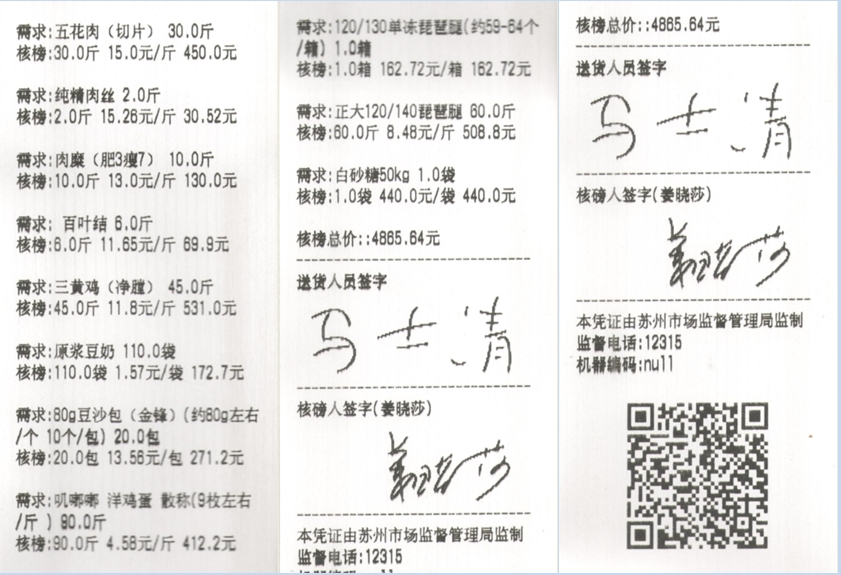 需求:五花肉（切片） 30.0斤
核榜:30.0斤 15.0元/斤 450.0元
需求:纯精肉丝 2.0斤
核榜:2.0斤 15.26元/斤 30.52元
需求:肉糜（肥3瘦7） 10.0斤
核榜:10.0斤 13.0元/斤 130.0元
需求: 百叶结 6.0斤
核榜:6.0斤 11.65元/斤 69.9元
需求:三黄鸡（净膛） 45.0斤
核榜:45.0斤 11.8元/斤 531.0元
需求:原浆豆奶 110.0袋
核榜:110.0袋 1.57元/袋 172.7元
需求:80g豆沙包（金锋）(约80g左右
/个 10个/包) 20.0包
核榜:20.0包 13.56元/包 271.2元
需求:叽嘟嘟 洋鸡蛋 散称(9枚左右
/斤 ) 90.0斤
核榜:90.0斤 4.58元/斤 412.2元
需求:120/130单冻琵琶腿(约59-64个
/箱) 1.0箱
核榜:1.0箱 162.72元/箱 162.72元
需求:正大120/140琵琶腿 60.0斤
核榜:60.0斤 8.48元/斤 508.8元
需求:白砂糖50kg 1.0袋
核榜:1.0袋 440.0元/袋 440.0元
核榜总价::4865.64元
送货人员签字
马士清
核磅人签字(姜晓莎)
姜晓莎
本凭证由苏州市场监督管理局监制
监督电话:12315
核榜总价::4865.64元
送货人员签字
马士清
核磅人签字(姜晓莎)
姜晓莎
本凭证由苏州市场监督管理局监制
监督电话:12315
机器编码:null